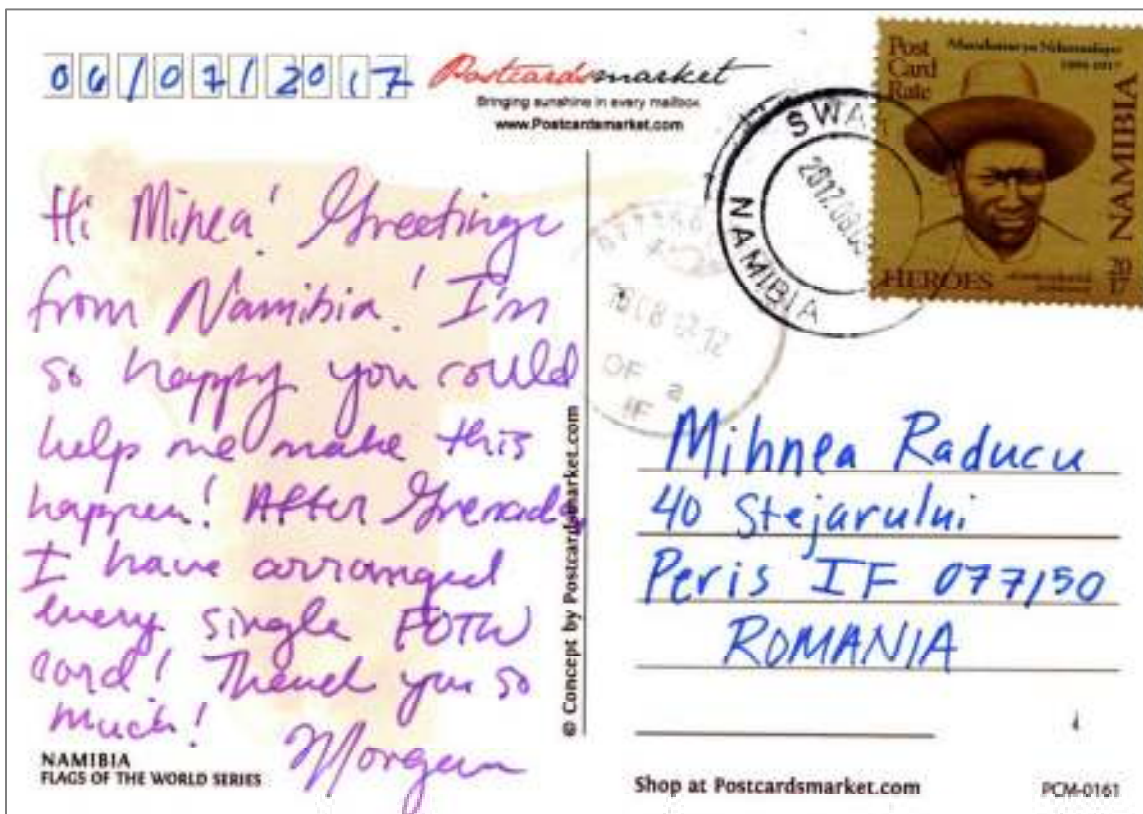 06/07/2017
Postcardsmarket
Bringing sunshine in every mailbox
www.Postcardsmarket.com
Post
Card
Rate
NAMIBIA
HEROES
SWA
2017.08.
NAMIBIA
10 08 17 12
OF a
IF
Hi Mihnea! Greetings
from Namibia! I'm
so happy you could
help me make this
happen! After Grenada
I have arranged
every single FOTW
card! Thank you so
much!
Morgan
NAMIBIA
FLAGS OF THE WORLD SERIES
© Concept by Postcardsmarket.com
Mihnea Raducu
40 Stejarului
Peris IF 077150
ROMANIA
Shop at Postcardsmarket.com
PCM-0161